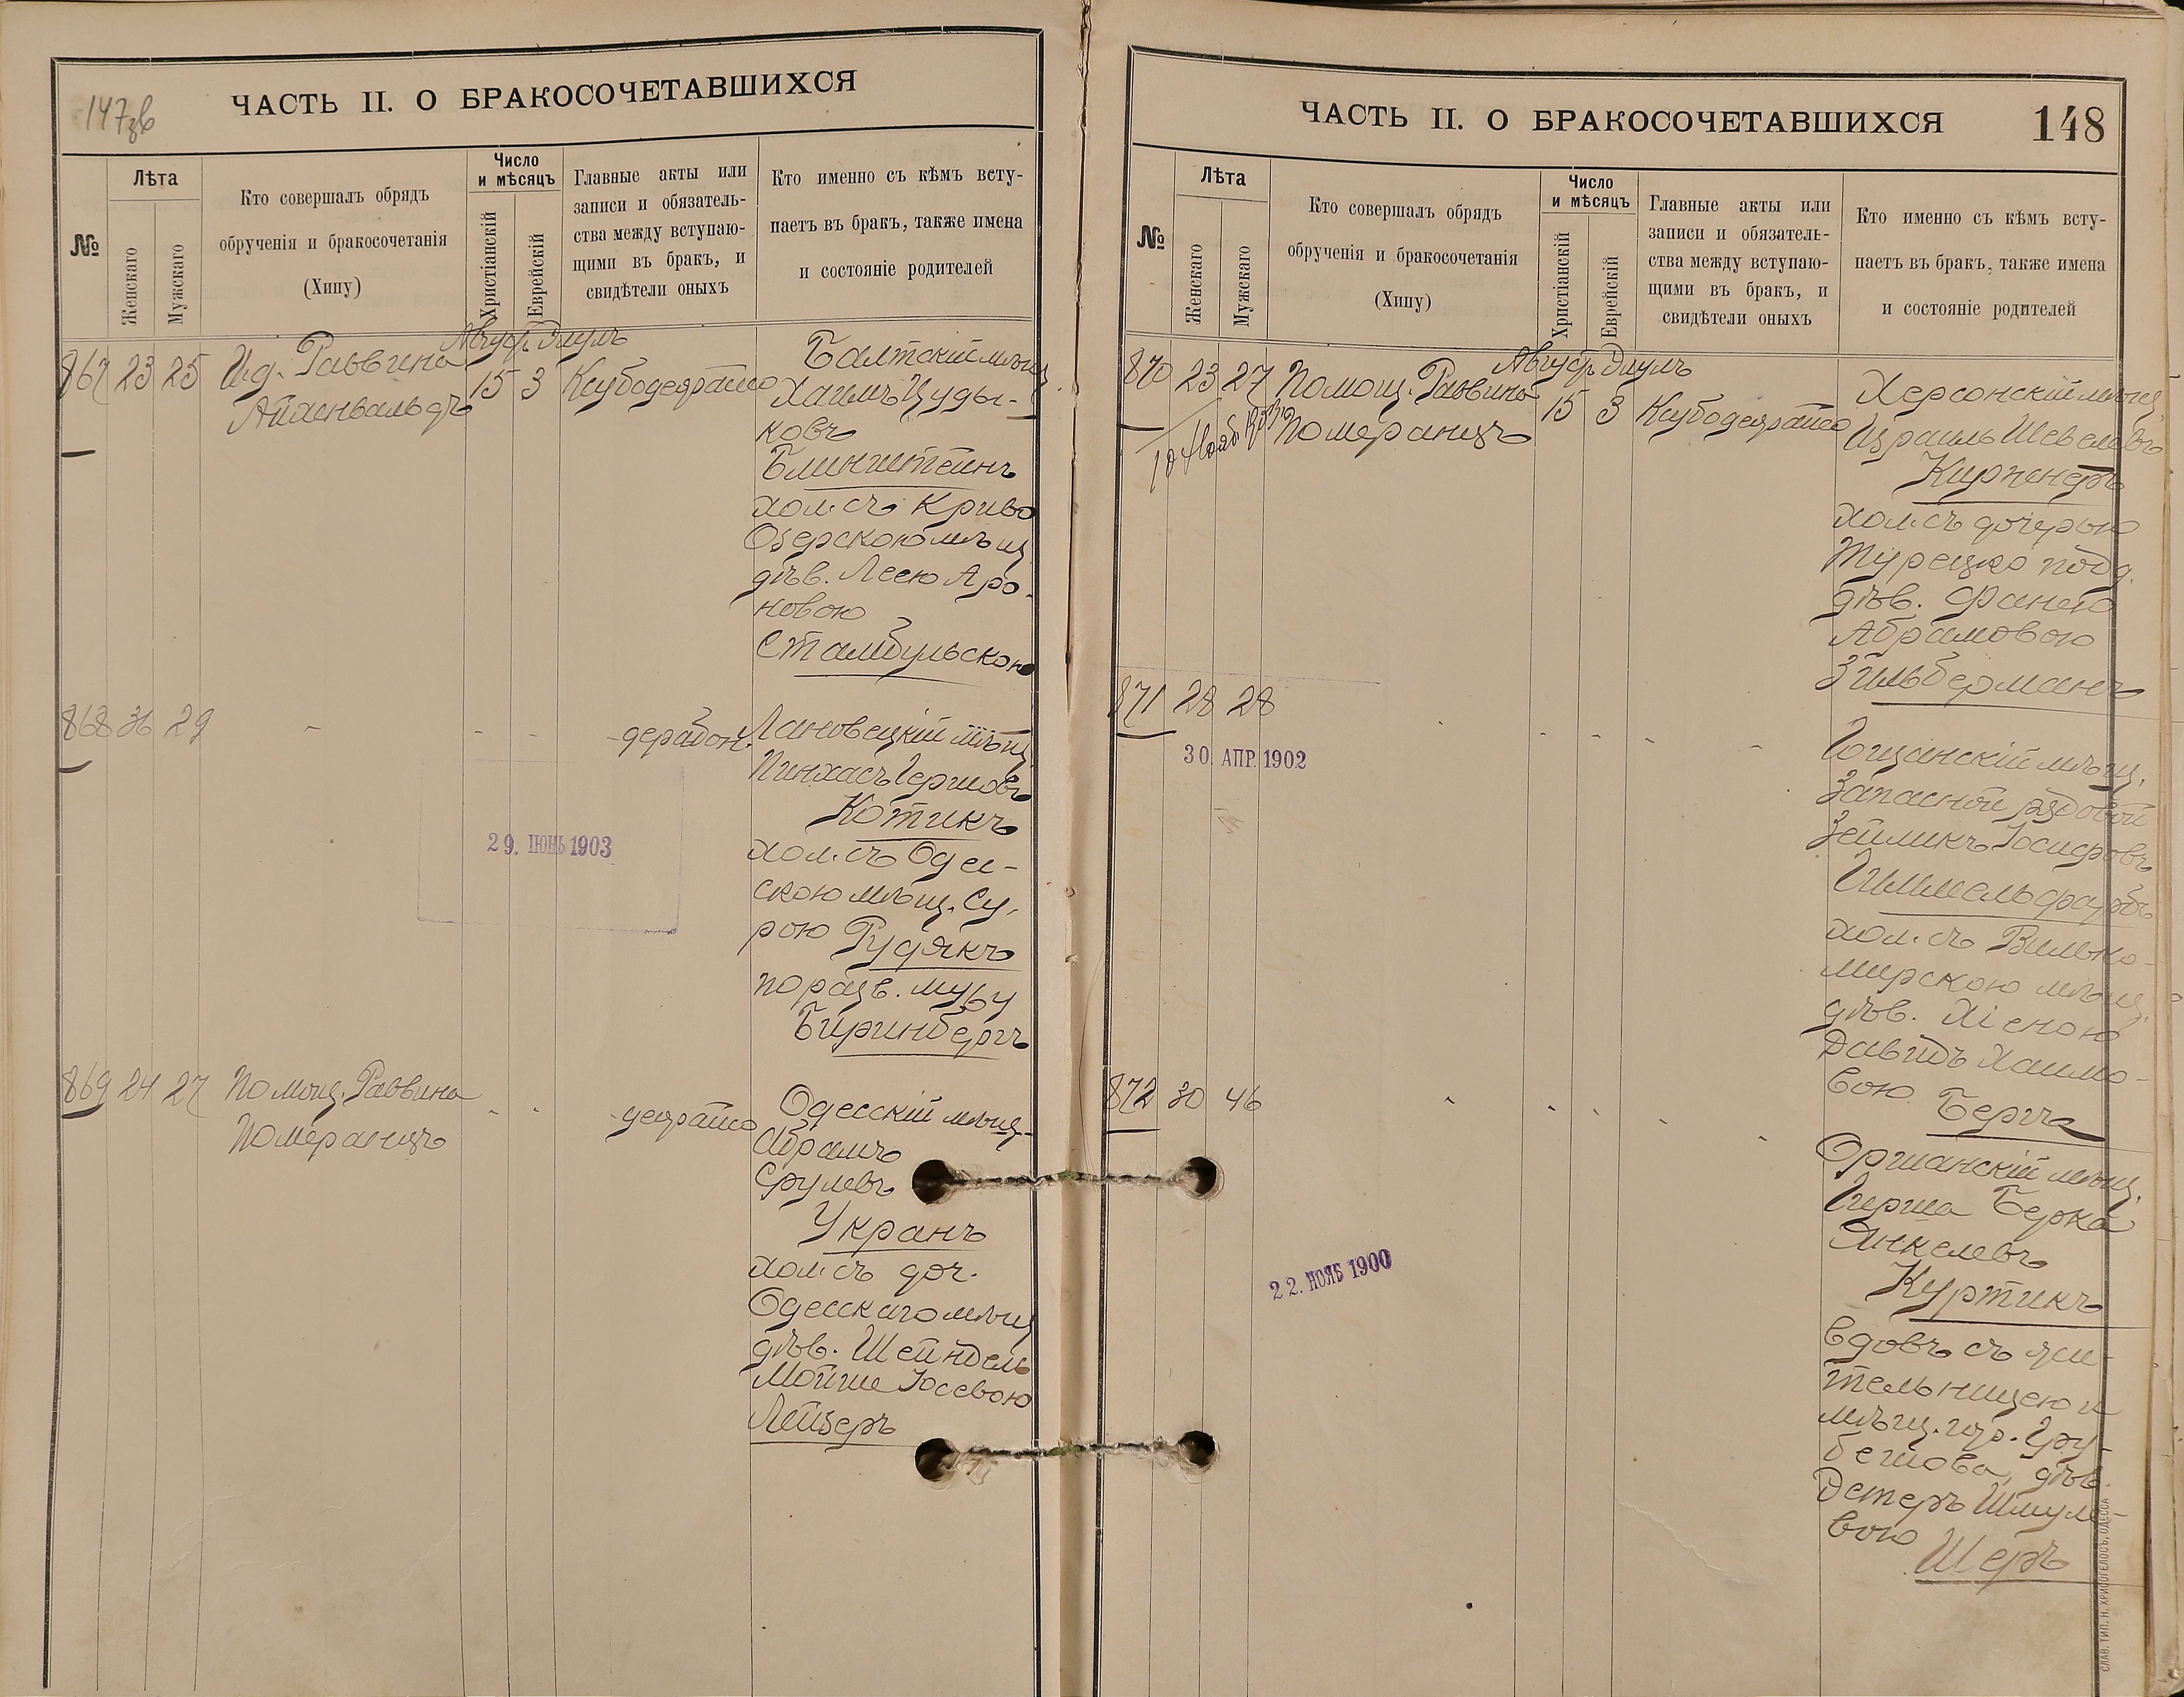 147зв
ЧАСТЬ II. О БРАКОСОЧЕТАВШИХСЯ
№
Лѣта
Женскаго
Мужскаго
Кто совершалъ обрядъ
обрученія и бракосочетанія
(Хипу)
Число
и мѣсяцъ
Христіанскій
Еврейскій
Главные акты или
записи и обязатель-
ства между вступаю-
щими въ бракъ, и
свидѣтели оныхъ
Кто именно съ кѣмъ всту-
паетъ въ бракъ, также имена
и состояніе родителей
Август Элулъ
867 23 25 И.д. Раввина 15 3
Айхенвальдъ
Балтскій мѣщ.
Хаимъ Цуды-
ковъ
Блинштейнъ
хол. съ Криво
Озерскою мѣщ
дѣв. Леею Аро-
новою
Стамбульскою
868 36 29 - - - -
Лановецкій мѣщ.
Пинхасъ Гершовъ
Котикъ
хол. съ Одес-
скою мѣщ. Су-
рою Рудякъ
по разв. мужу
Биринбергъ
29. ІЮНЬ 1903
869 24 27 Помощ. Раввина - -
Померанцъ
Одесскій мѣщ.
Абрамъ
Срулевъ
Укранъ
хол. съ доч.
Одесскаго мѣщ
дѣв. Шейндель
Мойше Іосевою
Лейзеръ
ЧАСТЬ II. О БРАКОСОЧЕТАВШИХСЯ
148
№
Лѣта
Женскаго
Мужскаго
Кто совершалъ обрядъ
обрученія и бракосочетанія
(Хипу)
Число
и мѣсяцъ
Христіанскій
Еврейскій
Главные акты или
записи и обязатель-
ства между вступаю-
щими въ бракъ, и
свидѣтели оныхъ
Кто именно съ кѣмъ всту-
паетъ въ бракъ, также имена
и состояніе родителей
Август Элулъ
870 23 27 Помощ. Раввина 15 3
Померанцъ
Херсонскій мѣщ.
Израиль Шевелевъ
Киржнеръ
хол. съ дочерью
Турецко подд.
дѣв. Фанею
Абрамовою
Зильберманъ
871 28 28 - - - -
30. АПР. 1902
Гощанскій мѣщ.
Запасной рядовой
Зейликъ Іосифовъ
Гиммельфарбъ
хол. съ Вилько-
мирскою мѣщ.
дѣв. Хіеною
Давидъ Хаимо-
вою Бергъ
872 30 46 - - - -
22. НОЯБ 1900
Оршанскій мѣщ.
Герша Берка
Янкелевъ
Куртикъ
вдовъ съ учи-
тельницею и
мѣщ. гор. Гру-
бешова, дѣв.
Эстеръ Шмуле-
вою
Шеръ
СЛАВ. ТИП. Н. ХРИСОГЕЛОСЪ, ОДЕССА